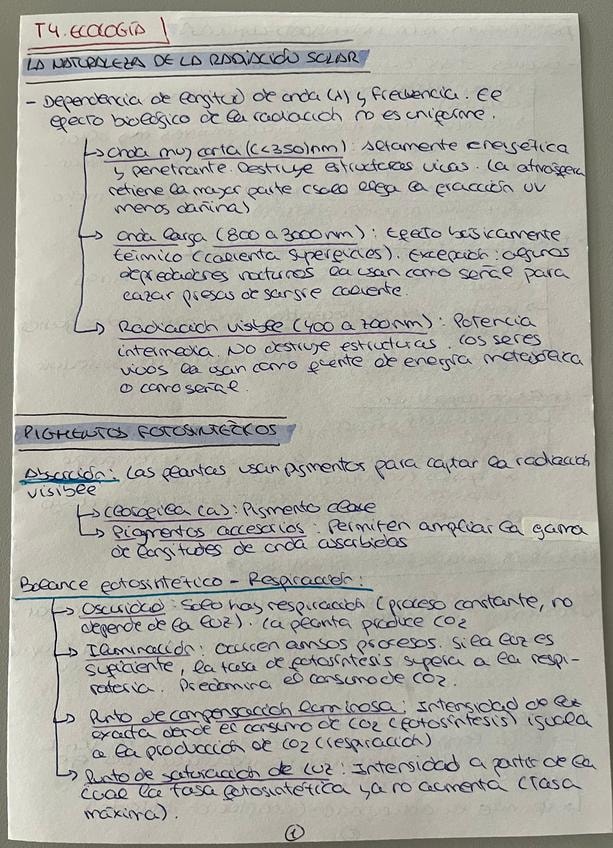 T4. ECOLOGÍA
LA NATURALEZA DE LA RADIACIÓN SOLAR
- Dependencia de longitud de onda (λ) y frecuencia. El
efecto biológico de la radiación no es uniforme.
↳ Onda muy corta (<350nm): Altamente energética
y penetrante. Destruye estructuras vivas. La atmósfera
retiene la mayor parte (solo llega la fracción UV
menos dañina)
→ Onda larga (800 a 3000nm): Efecto básicamente
térmico (calienta superficies). Excepción: algunos
depredadores nocturnos la usan como señal para
cazar presas de sangre caliente.
↳ Radiación visible (400 a 700nm): Potencia
intermedia. No destruye estructuras. Los seres
vivos la usan como fuente de energía metabólica
o como señal.
PIGMENTOS FOTOSINTÉTICOS
Absorción: Las plantas usan pigmentos para captar la radiación
visible
↳ Clorofila (a): Pigmento clave
↳ Pigmentos accesorios: Permiten ampliar la gama
de longitudes de onda absorbidas
Balance fotosintético - Respiración:
→ Oscuridad: Solo hay respiración (proceso constante, no
depende de la luz). La planta produce CO2
→ Iluminación: Ocurren ambos procesos. Si la luz es
suficiente, la tasa de fotosíntesis supera a la respi-
ratoria. Predomina el consumo de CO2.
→ Punto de compensación luminosa: Intensidad de luz
exacta donde el consumo de CO2 (fotosíntesis) iguala
a la producción de CO2 (respiración)
↳ Punto de saturación de luz: Intensidad a partir de la
cual la tasa fotosintética ya no aumenta (tasa
máxima).
1